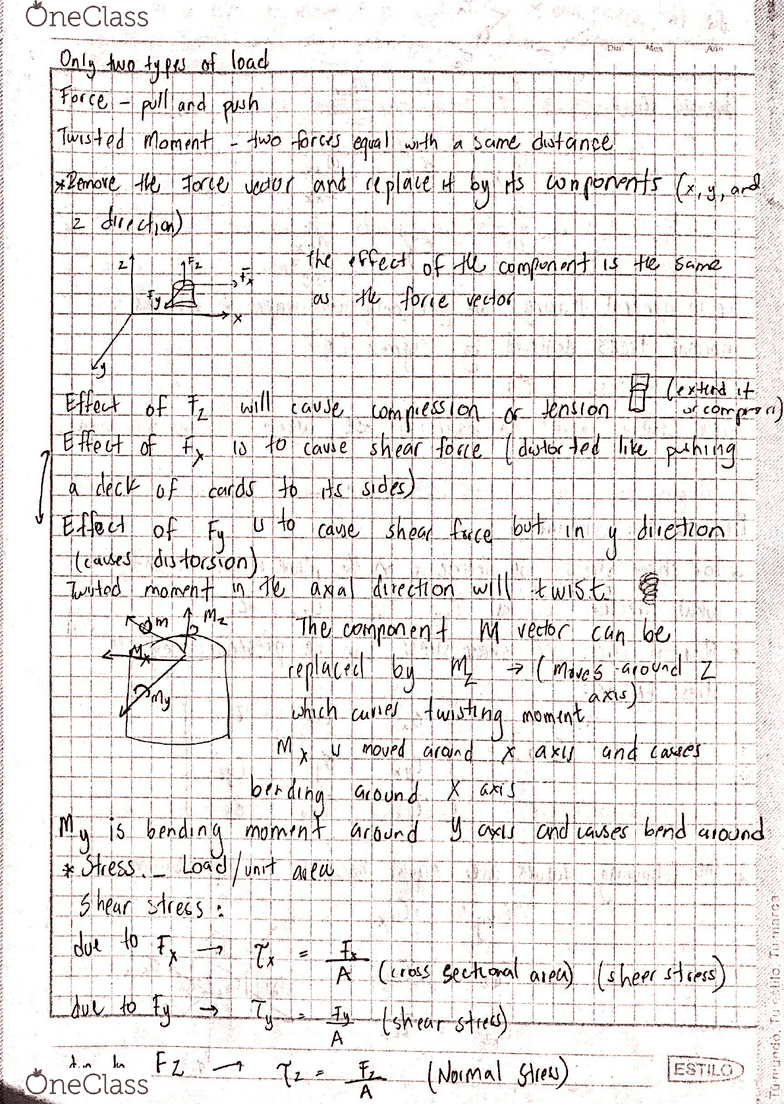 OneClass
Día Mes Año
Only two types of load
Force - pull and push
Twisted Moment - two forces equal with a same distance
*Remove the Force vector and replace it by its components (x, y, and
z direction)
z Fz Fx Fy x y
The effect of the component is the same
as the force vector
Effect of Fz will cause compression or tension (extend it
or compress)
Effect of Fx is to cause shear force (distorted like pushing
a deck of cards to its sides)
Effect of Fy is to cause shear force but in y direction
(causes distorsion)
Twisted moment in the axial direction will twist
m Mz Mx My
The component M vector can be
replaced by Mz → (moves around Z
axis)
which causes twisting moment.
Mx is moved around x axis and causes
bending around X axis
My is bending moment around y axis and causes bend around
* Stress. _ Load/unit area
Shear stress:
due to Fx → τx = Fx/A (cross sectional area) (sheer stress)
due to Fy → τy = Fy/A (shear stress)
due to Fz → τz = Fz/A (Normal Stress)
ESTILO
OneClass